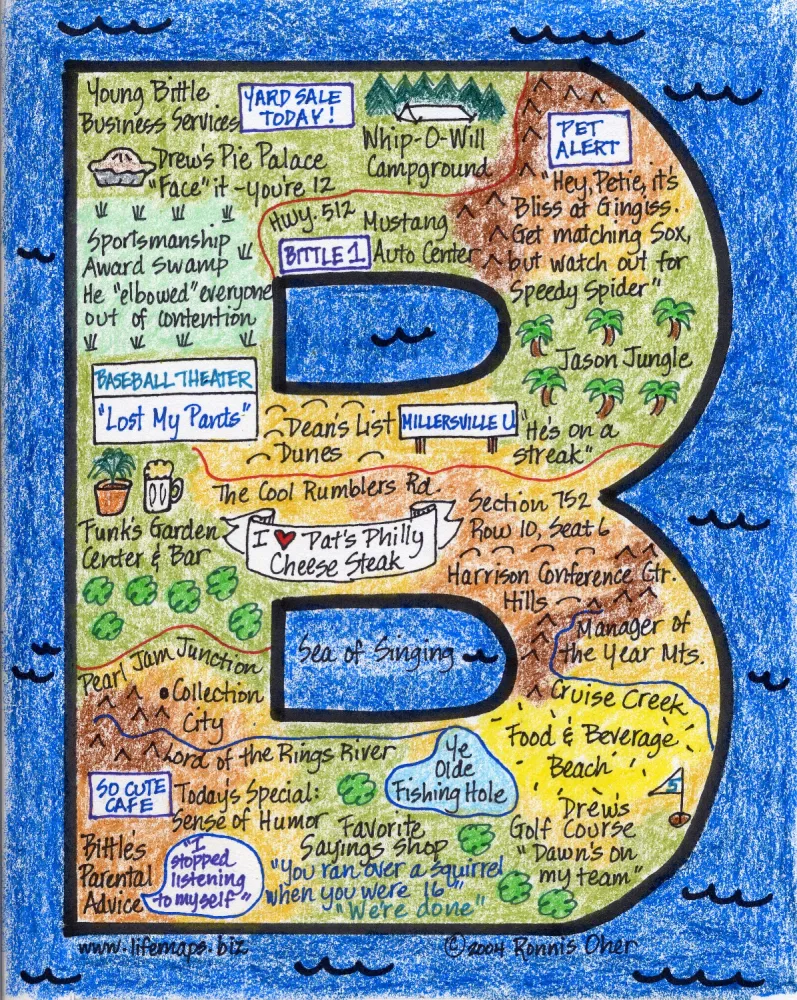 Young Bittle
Business Services
YARD SALE
TODAY!
Whip-O-Will
Campground
PET
ALERT
Drew's Pie Palace
"Face" it - you're 12
"Hey, Petie, it's
Bliss at Gingiss.
Get matching Sox,
but watch out for
Speedy Spider"
Hwy. 512
Mustang
Auto Center
BITTLE 1
Sportsmanship
Award Swamp
He "elbowed" everyone
out of contention
Jason Jungle
BASEBALL THEATER
"Lost My Pants"
Dean's List
Dunes
MILLERSVILLE U
"He's on a
streak"
The Cool Rumblers Rd.
Section 752
Row 10, Seat 6
Funk's Garden
Center & Bar
I ♥ Pat's Philly
Cheese Steak
Harrison Conference Ctr.
Hills
Manager of
the Year Mts.
Sea of Singing
Pearl Jam Junction
Collection
City
Cruise Creek
Lord of the Rings River
Ye
Olde
Fishing Hole
Food & Beverage
Beach
SO CUTE
CAFE
Today's Special:
Sense of Humor
5
Drew's
Golf Course
"Dawn's on
my team"
Bittle's
Parental
Advice
"I
stopped
listening
to myself"
Favorite
Sayings Shop
"You ran over a squirrel
when you were 16"
"We're done"
www.lifemaps.biz
©2004 Ronnis Oher